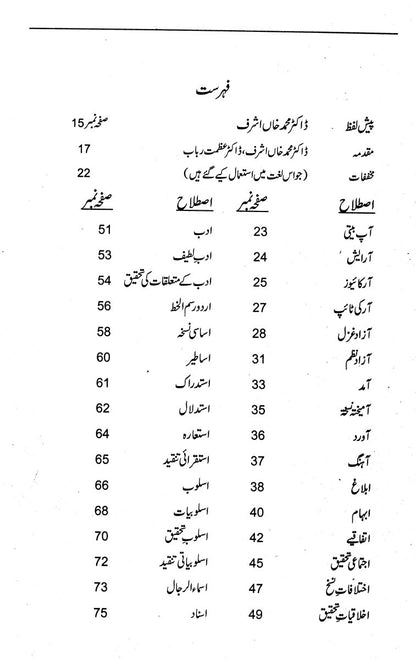 فہرست
پیش لفظ ڈاکٹر محمد خاں اشرف صفحہ نمبر 15
مقدمہ ڈاکٹر محمد خاں اشرف، ڈاکٹر عظمت رباب 17
مخففات (جو اس لغت میں استعمال کیے گئے ہیں) 22
اصطلاح صفحہ نمبر اصطلاح صفحہ نمبر
آپ بیتی 23 ادب 51
آرایش 24 ادبِ لطیف 53
آرکائیوز 25 ادب کے متعلقات کی تحقیق 54
آرکی ٹائپ 27 اردو رسم الخط 56
آزاد غزل 28 اساسی نسخہ 58
آزاد نظم 31 اساطیر 60
آمد 33 استدراک 61
آمیختہ نسخہ 35 استدلال 62
آورد 36 استعارہ 64
آہنگ 37 استقرائی تنقید 65
ابلاغ 38 اسلوب 66
ابہام 40 اسلوبیات 68
اتفاقیے 42 اسلوبِ تحقیق 70
اجتماعی تحقیق 45 اسلوبیاتی تنقید 72
اختلافاتِ نسخ 47 اسماء الرجال 73
اخلاقیاتِ تحقیق 49 اسناد 75